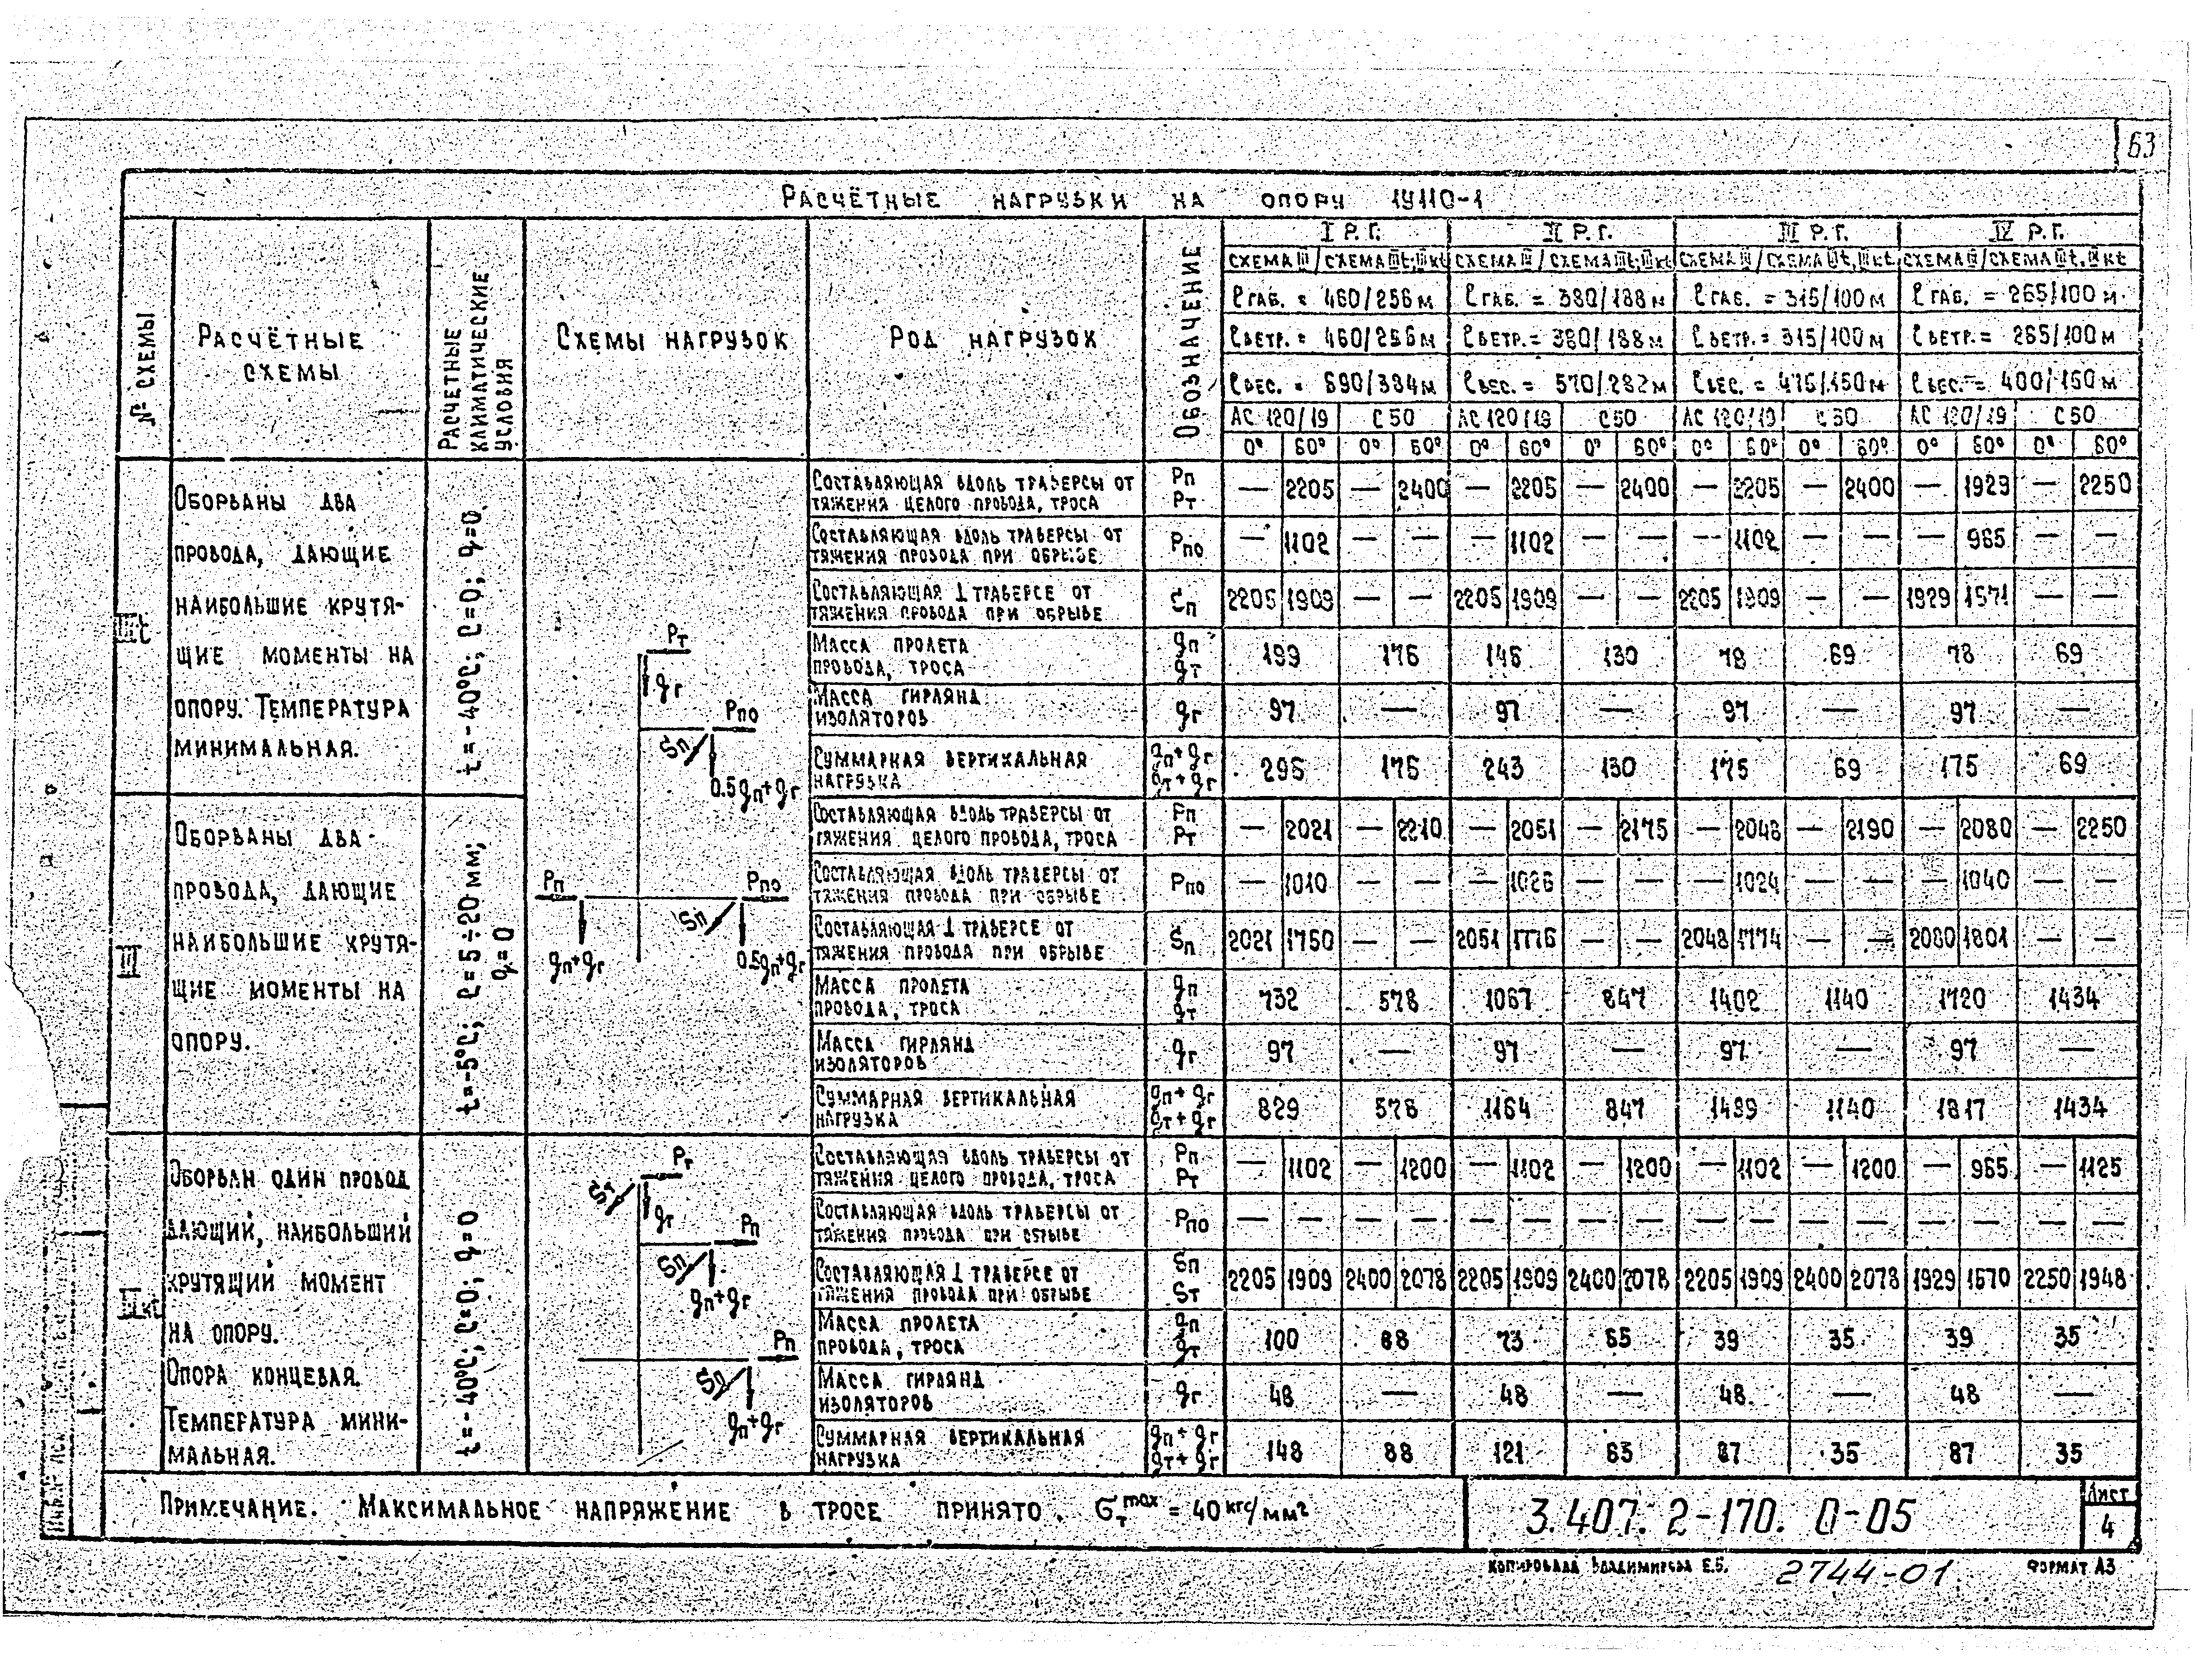 63
Расчётные нагрузки на опору 1У110-1
№ схемы
Расчётные схемы
Расчетные климатические условия
Схемы нагрузок
Род нагрузок
Обозначение
I Р.Г. II Р.Г. III Р.Г. IV Р.Г.
схема III/схема IIIt, IIIкt схема III/схема IIIt, IIIкt схема III/схема IIIt, IIIкt схема III/схема IIIt, IIIкt
ℓгаб. = 460/256м ℓгаб. = 380/188м ℓгаб. = 315/100м ℓгаб. = 265/100м
ℓветр. = 460/256м ℓветр. = 380/188м ℓветр. = 315/100м ℓветр. = 265/100м
ℓвес. = 690/384м ℓвес. = 570/282м ℓвес. = 475/150м ℓвес. = 400/150м
АС 120/19 С50 АС 120/19 С50 АС 120/19 С50 АС 120/19 С50
0° 60° 0° 60° 0° 60° 0° 60° 0° 60° 0° 60° 0° 60° 0° 60°
IIIt
Оборваны два
провода, дающие
наибольшие крутя-
щие моменты на
опору. Температура
минимальная.
t=-40°С; С=0; q=0
Рт
gт
Рпо
Sп
0.5gп+gг
Составляющая вдоль траверсы от тяжения целого провода, троса Рп Рт — 2205 — 2400 — 2205 — 2400 — 2205 — 2400 — 1929 — 2250
Составляющая вдоль траверсы от тяжения провода при обрыве Рпо — 1102 — — — 1102 — — — 1102 — — — 965 — —
Составляющая ⊥ траверсе от тяжения провода при обрыве Sп 2205 1909 — — 2205 1909 — — 2205 1909 — — 1929 1671 — —
Масса пролета провода, троса gп gт 199 176 146 130 78 69 78 69
Масса гирлянд изоляторов gг 97 — 97 — 97 — 97 —
Суммарная вертикальная нагрузка gп+gг gт+gг 296 176 243 130 175 69 175 69
III
Оборваны два
провода, дающие
наибольшие крутя-
щие моменты на
опору.
t=-5°С; С=5÷20мм; q=0
Рп
gп+gг
Рпо
Sп
0.5gп+gг
Составляющая вдоль траверсы от тяжения целого провода, троса Рп Рт — 2021 — 2210 — 2051 — 2175 — 2048 — 2190 — 2080 — 2250
Составляющая вдоль траверсы от тяжения провода при обрыве Рпо — 1010 — — — 1026 — — — 1024 — — — 1040 — —
Составляющая ⊥ траверсе от тяжения провода при обрыве Sп 2021 1750 — — 2051 1776 — — 2048 1774 — — 2080 1801 — —
Масса пролета провода, троса gп gт 732 578 1067 847 1402 1140 1720 1434
Масса гирлянд изоляторов gг 97 — 97 — 97 — 97 —
Суммарная вертикальная нагрузка gп+gг gт+gг 829 578 1164 847 1499 1140 1817 1434
IIIкt
Оборван один провод
дающий, наибольший
крутящий момент
на опору.
Опора концевая.
Температура мини-
мальная.
t=-40°С; С=0; q=0
Рт
Sт
gт
Рп
Sп
gп+gг
Рп
Sп
gп+gг
Составляющая вдоль траверсы от тяжения целого провода, троса Рп Рт — 1102 — 1200 — 1102 — 1200 — 1102 — 1200 — 965 — 1125
Составляющая вдоль траверсы от тяжения провода при обрыве Рпо — — — — — — — — — — — — — — — —
Составляющая ⊥ траверсе от тяжения провода при обрыве Sп Sт 2205 1909 2400 2078 2205 1909 2400 2078 2205 1909 2400 2078 1929 1670 2250 1948
Масса пролета провода, троса gп gт 100 88 73 65 39 35 39 35
Масса гирлянд изоляторов gг 48 — 48 — 48 — 48 —
Суммарная вертикальная нагрузка gп+gг gт+gг 148 88 121 65 87 35 87 35
Примечание. Максимальное напряжение в тросе принято. Gтmax = 40 кгс/мм²
3.407.2-170.0-05
Лист
4
Копировала Владимирова Е.Б. 2744-01 Формат А3